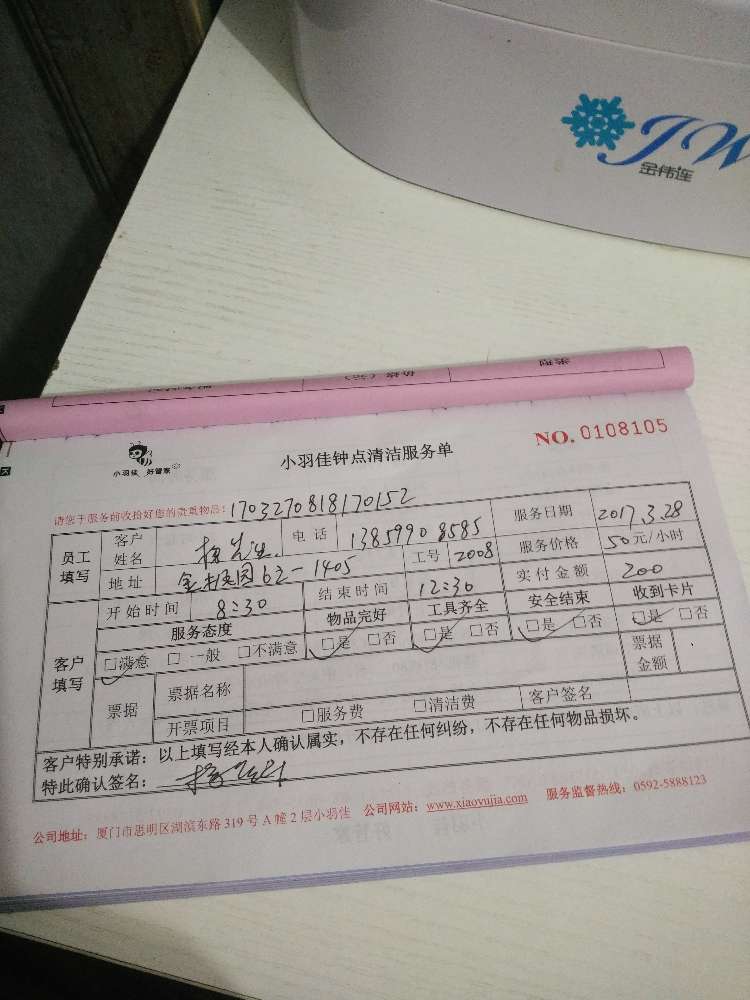 JW
金伟连
NO. 0108105
小羽佳 好管家
小羽佳钟点清洁服务单
请您于服务前收拾好您的贵重物品: 1703270818170152
员工填写 客户姓名 杨先生 电话 13859908585 服务日期 2017.3.28
地址 62-1405 工号 2008 服务价格 50元/小时
客户填写 开始时间 8:30 结束时间 12:30 实付金额 200
服务态度 物品完好 工具齐全 安全结束 收到卡片
□满意 □一般 □不满意 □是 □否 □是 □否 □是 □否 □是 □否
票据 票据名称 票据金额
开票项目 □服务费 □清洁费 客户签名
客户特别承诺：以上填写经本人确认属实，不存在任何纠纷，不存在任何物品损坏。
特此确认签名：
公司地址：厦门市思明区湖滨东路 319 号 A 幢 2 层小羽佳 公司网站：www.xiaoyujia.com 服务监督热线：0592-5888123